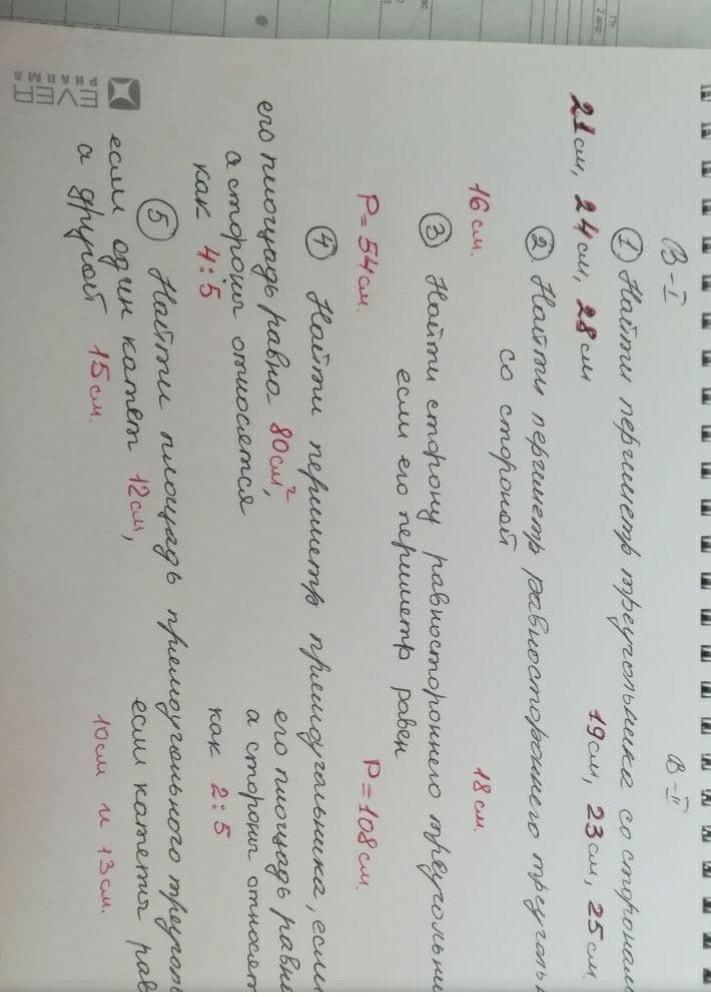 В-I
В-II
① Найти периметр треугольника со сторонам
21см, 24см, 28см
19см, 23см, 25см.
② Найти периметр равностороннего треуголь
со стороной
16 см.
18 см.
③ Найти сторону равностороннего треугольни
если его периметр равен
P = 54см.
P = 108см.
④ Найти периметр прямоугольника, если
его площадь равна 80см²,
его площадь равна
а стороны относятся
а стороны относят
как 4:5
как 2:5
⑤ Найти площадь прямоугольного треуголь
если один катет 12см,
если катеты рав
а другой 15см.
10см и 13см.
EVER
PHARMA